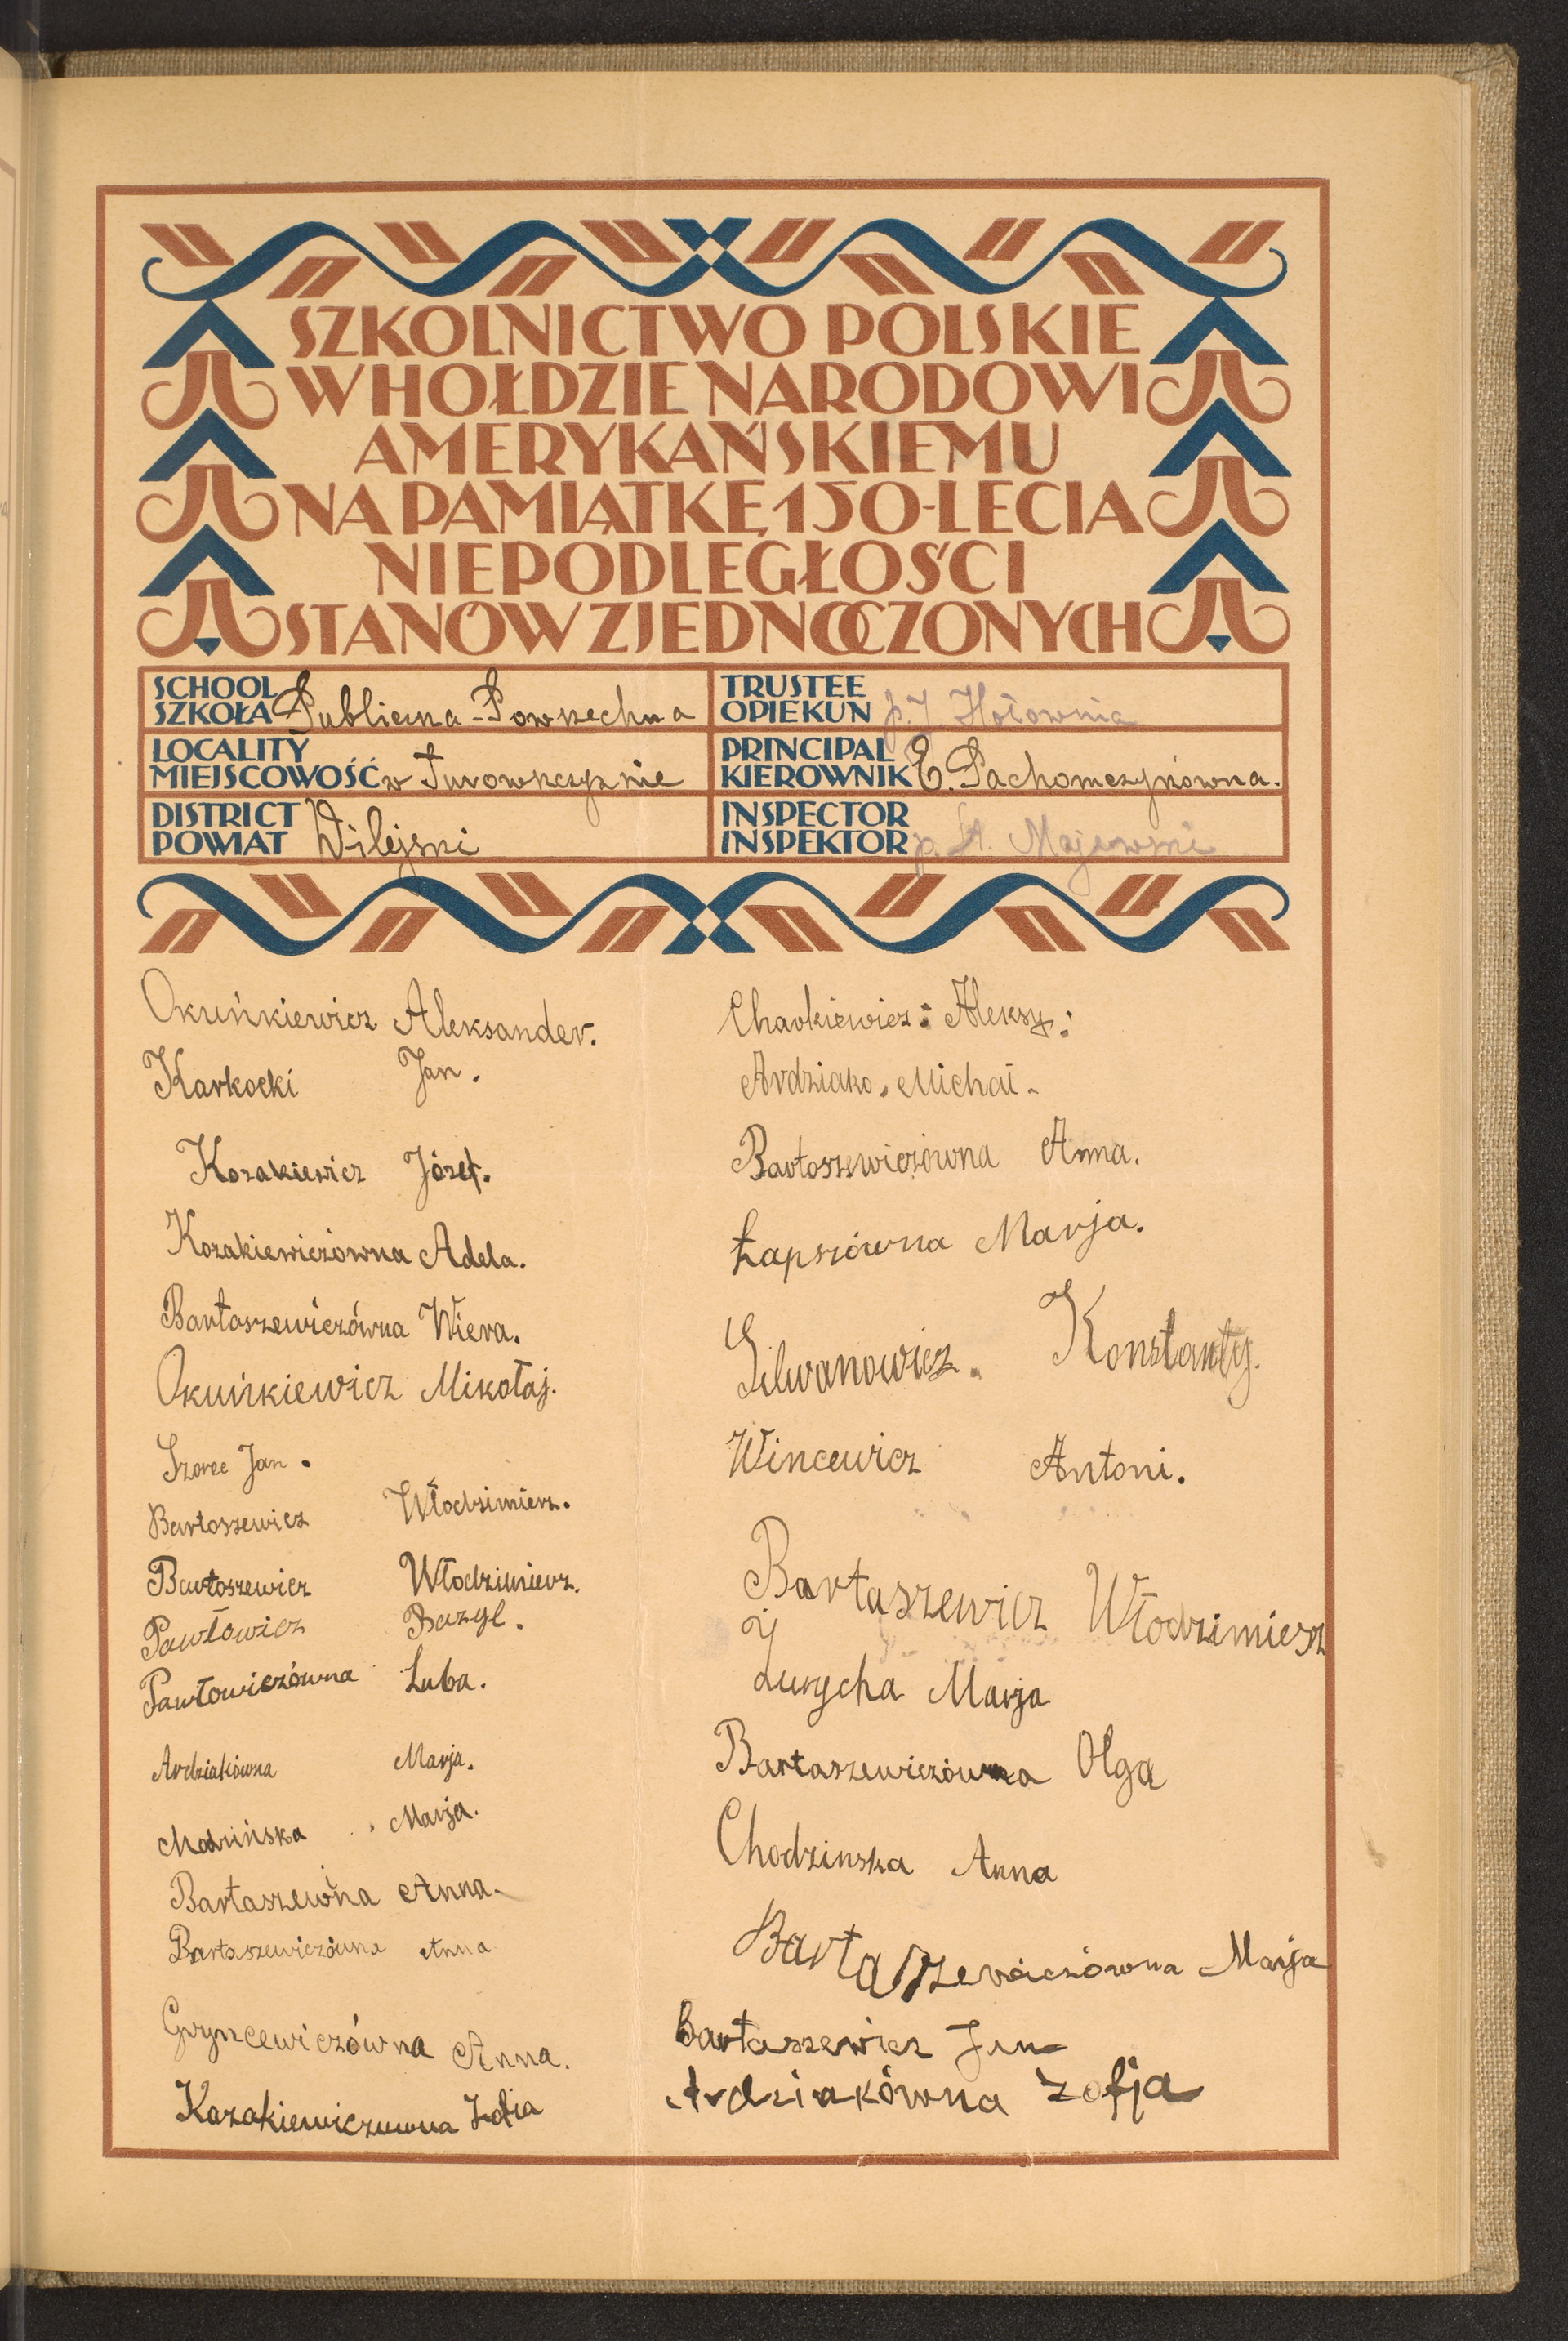 SZKOLNICTWO POLSKIE
W HOŁDZIE NARODOWI
AMERYKAŃSKIEMU
NA PAMIĄTKĘ 150-LECIA
NIEPODLEGŁOŚCI
STANÓW ZJEDNOCZONYCH
SCHOOL
SZKOŁA Publiczna-Powszechna
TRUSTEE
OPIEKUN p. J. Hołownia
LOCALITY
MIEJSCOWOŚĆ w Turowszczyznie
PRINCIPAL
KIEROWNIK E. Pachomczykówna.
DISTRICT
POWIAT Wilejski
INSPECTOR
INSPEKTOR p. St. Majewski
Okuńkiewicz Aleksander.
Karkocki Jan.
Kozakiewicz Józef.
Kozakiewiczówna Adela.
Bartaszewiczówna Wiera.
Okuńkiewicz Mikołaj.
Szorec Jan.
Bartoszewicz Włodzimierz.
Bartoszewicz Włodzimierz.
Pawłowicz Bazyl.
Pawłowiczówna Luba.
Ardziakówna Marja.
Chodzińska Marja.
Bartaszewna Anna.
Bartaszewiczówna Anna
Gryncewiczówna Anna.
Kazakiewiczuwna Zofia
Charkiewicz: Aleksy:
Ardziako. Michał-
Bartoszewiczówna Anna.
Łapszówna Marja.
Silwanowicz. Konstanty.
Wincewicz Antoni.
Bartaszewicz Włodzimiesz
Żurycha Marja
Bartaszewiczówna Olga
Chodzinska Anna
Bartaszewiczówna Marja
Bartaszewicz Jan
Ardziakówna Zofja